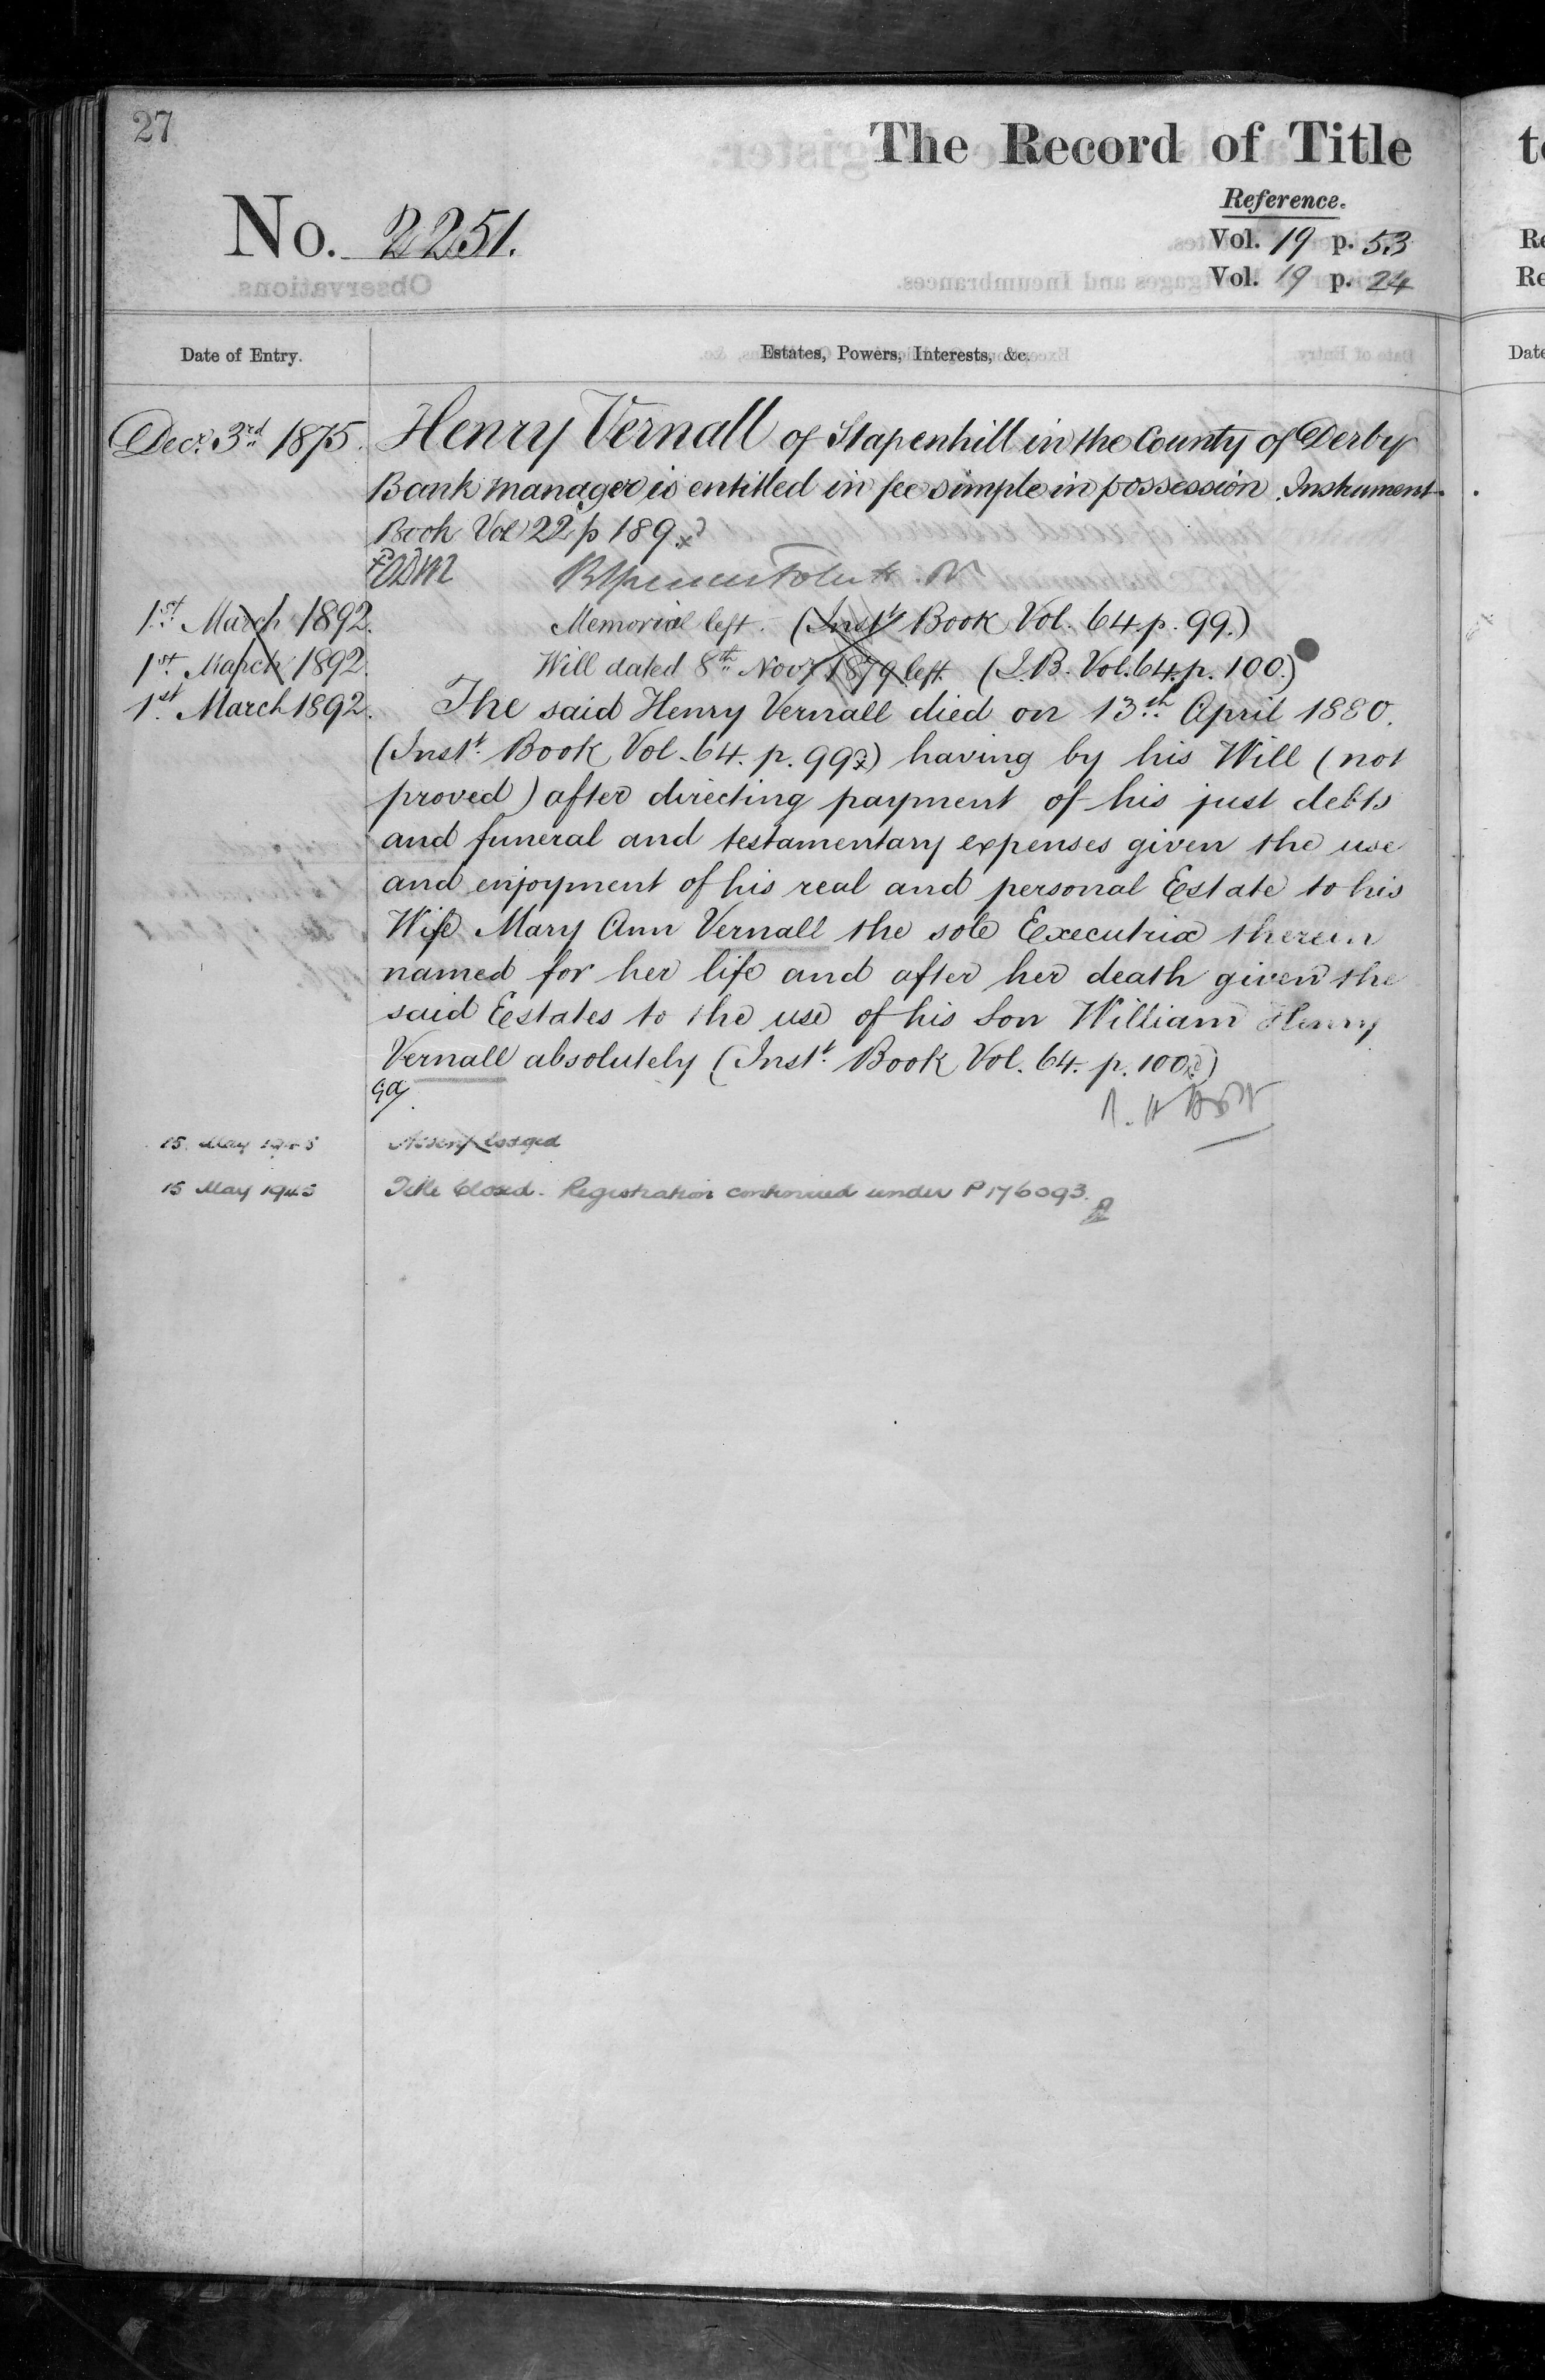 27
The Record of Title
Reference.
No. 2251.
Vol. 19 p. 53
Vol. 19 p. 24
Date of Entry.
Estates, Powers, Interests, &c.
Decr. 3rd 1875. Henry Vernall of Stapenhill in the County of Derby
Bank manager is entitled in fee simple in possession. Instrument
Book Vol 22 p 189
1st March 1892. Memorial left. (Instt Book Vol. 64 p. 99.)
1st March 1892. Will dated 8th Novr 1879 left (I.B. Vol. 64. p. 100.)
1st March 1892. The said Henry Vernall died on 13th April 1880.
(Instt. Book Vol. 64. p. 99) having by his Will (not
proved) after directing payment of his just debts
and funeral and testamentary expenses given the use
and enjoyment of his real and personal Estate to his
Wife Mary Ann Vernall the sole Executrix therein
named for her life and after her death given the
said Estates to the use of his Son William Henry
Vernall absolutely (Instt. Book Vol. 64. p. 100)
15 May 1945 Assent lodged
15 May 1945 Title closed. Registration continued under P176093.
to
Re
Re
Date